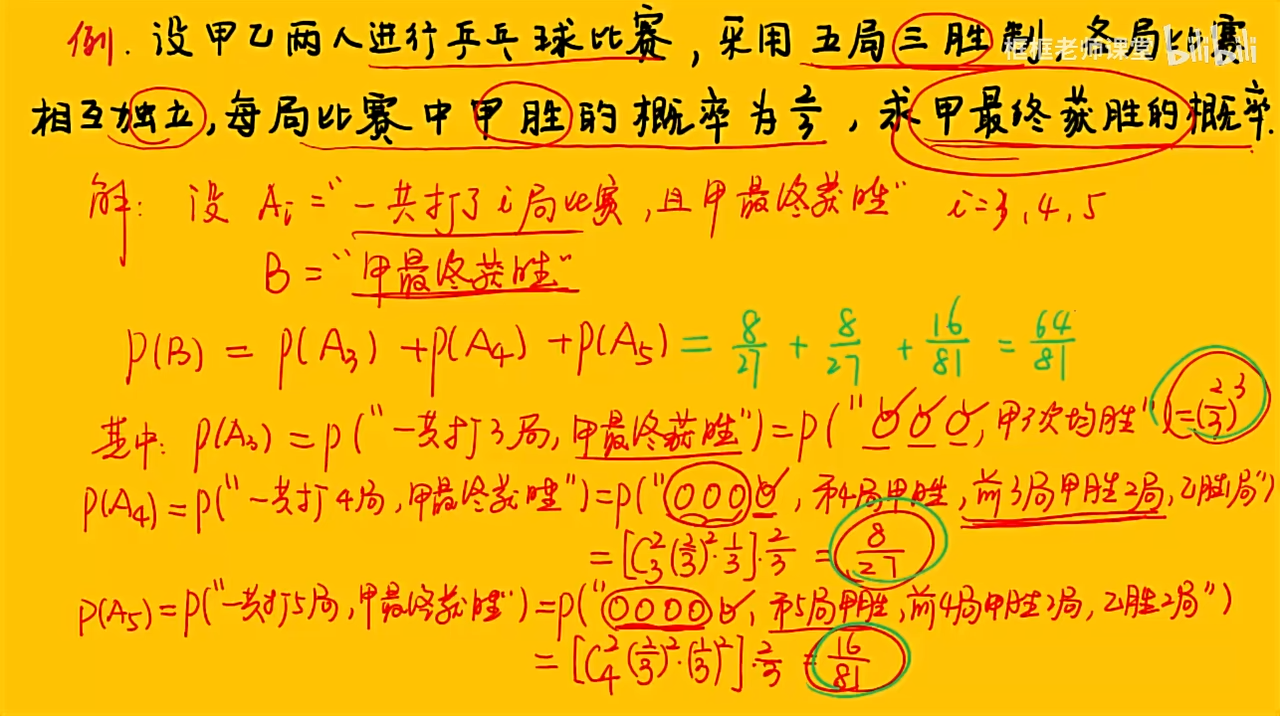 例. 设甲乙两人进行乒乓球比赛，采用五局三胜制，各局比赛
框框老师课堂 bilibili
相互独立，每局比赛中甲胜的概率为2/3，求甲最终获胜的概率.
解：设 Aᵢ="一共打了i局比赛，且甲最终获胜" i=3,4,5
B="甲最终获胜"
P(B) = P(A₃) + P(A₄) + P(A₅) = 8/27 + 8/27 + 16/81 = 64/81
其中：P(A₃) = P("一共打3局，甲最终获胜") = P("000，甲3次均胜") = (2/3)³
P(A₄) = P("一共打4局，甲最终获胜") = P("0000，第4局甲胜，前3局甲胜2局，乙胜1局")
= [C₃²(2/3)²·1/3]·2/3 = 8/27
P(A₅) = P("一共打5局，甲最终获胜") = P("00000，第5局甲胜，前4局甲胜2局，乙胜2局")
= [C₄²(2/3)²·(1/3)²]·2/3 = 16/81